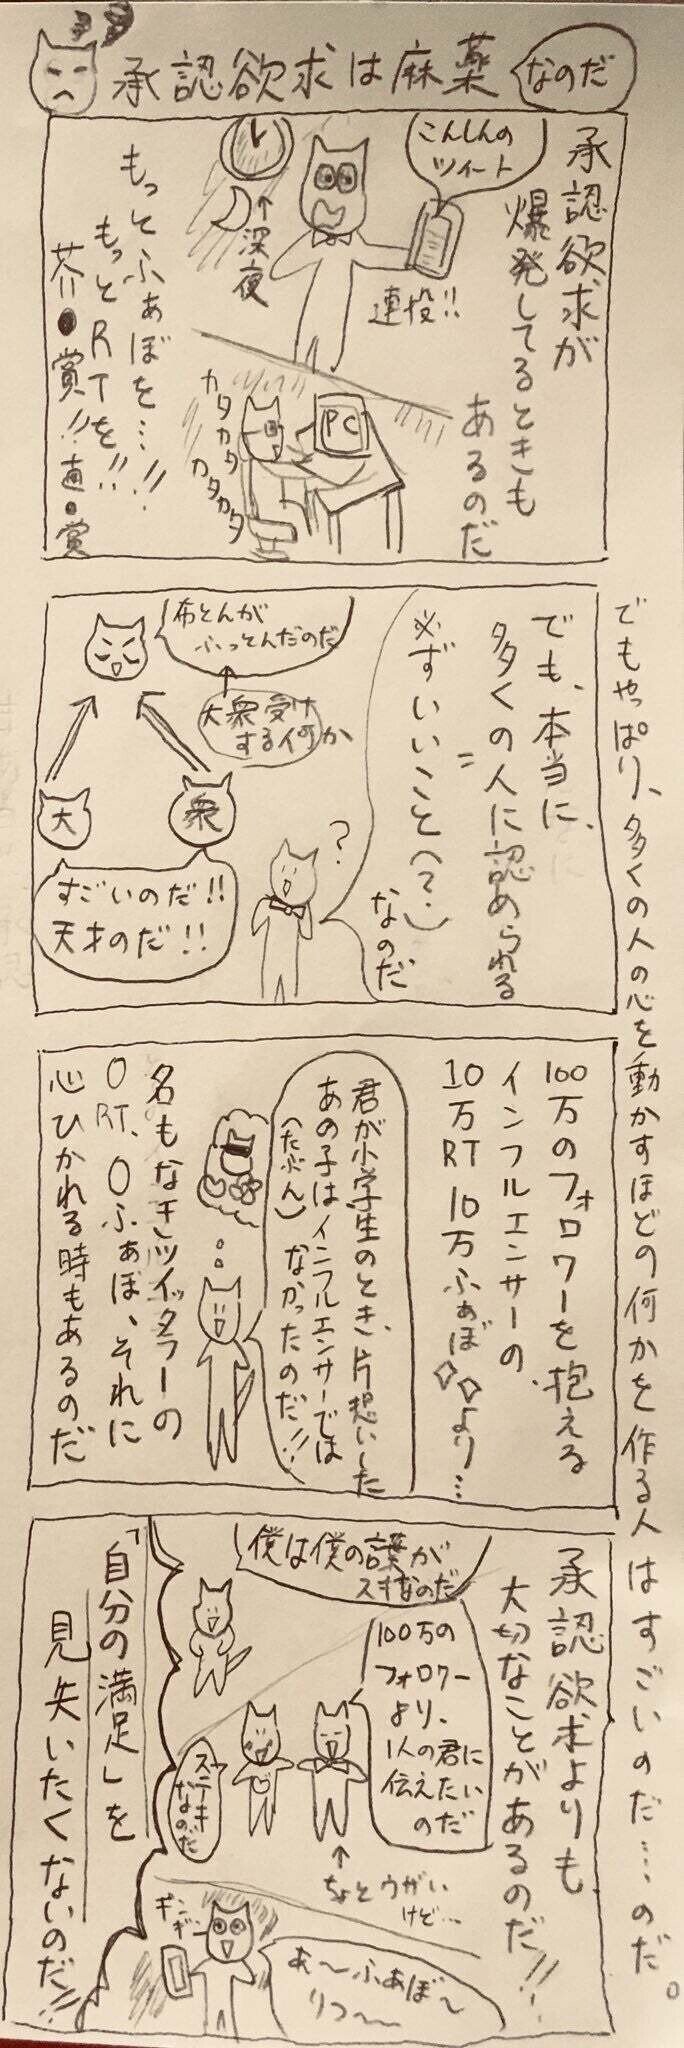 承認欲求は麻薬
なのだ
承認欲求が
爆発してるときも
あるのだ
こんしんの
ツイート
連投!!
深夜
もっとふぁぼを…!!
もっとRTを!!
芥川●賞!!直●賞
PC
カタカタ
カタカタ
でも、本当に、
多くの人に認められる
=
必ずいいこと(?)
なのだ
?
布とんが
ふっとんだのだ
大衆受け
する何か
大
衆
すごいのだ!!
天才のだ!!
100万のフォロワーを抱える
インフルエンサーの、
10万RT 10万ふぁぼより…
君が小学生のとき、片想いした
あの子はインフルエンサーでは
(たぶん)なかったのだ!!
名もなきツイッタラーの
0RT、0ふぁぼ、それに
心ひかれる時もあるのだ
承認欲求よりも、
大切なことがあるのだ!!
僕は僕の言葉が
スキなのだ
100万の
フォロワー
より、
1人の君に
伝えたい
のだ
ステキ
なのだ
ちょとうがい
けど…
ギンギン
あ〜ふぁぼ〜
りつ〜
「自分の満足」を
見失いたくないのだ!!
でもやっぱり、多くの人の心を動かすほどの何かを作る人はすごいのだ…のだ。